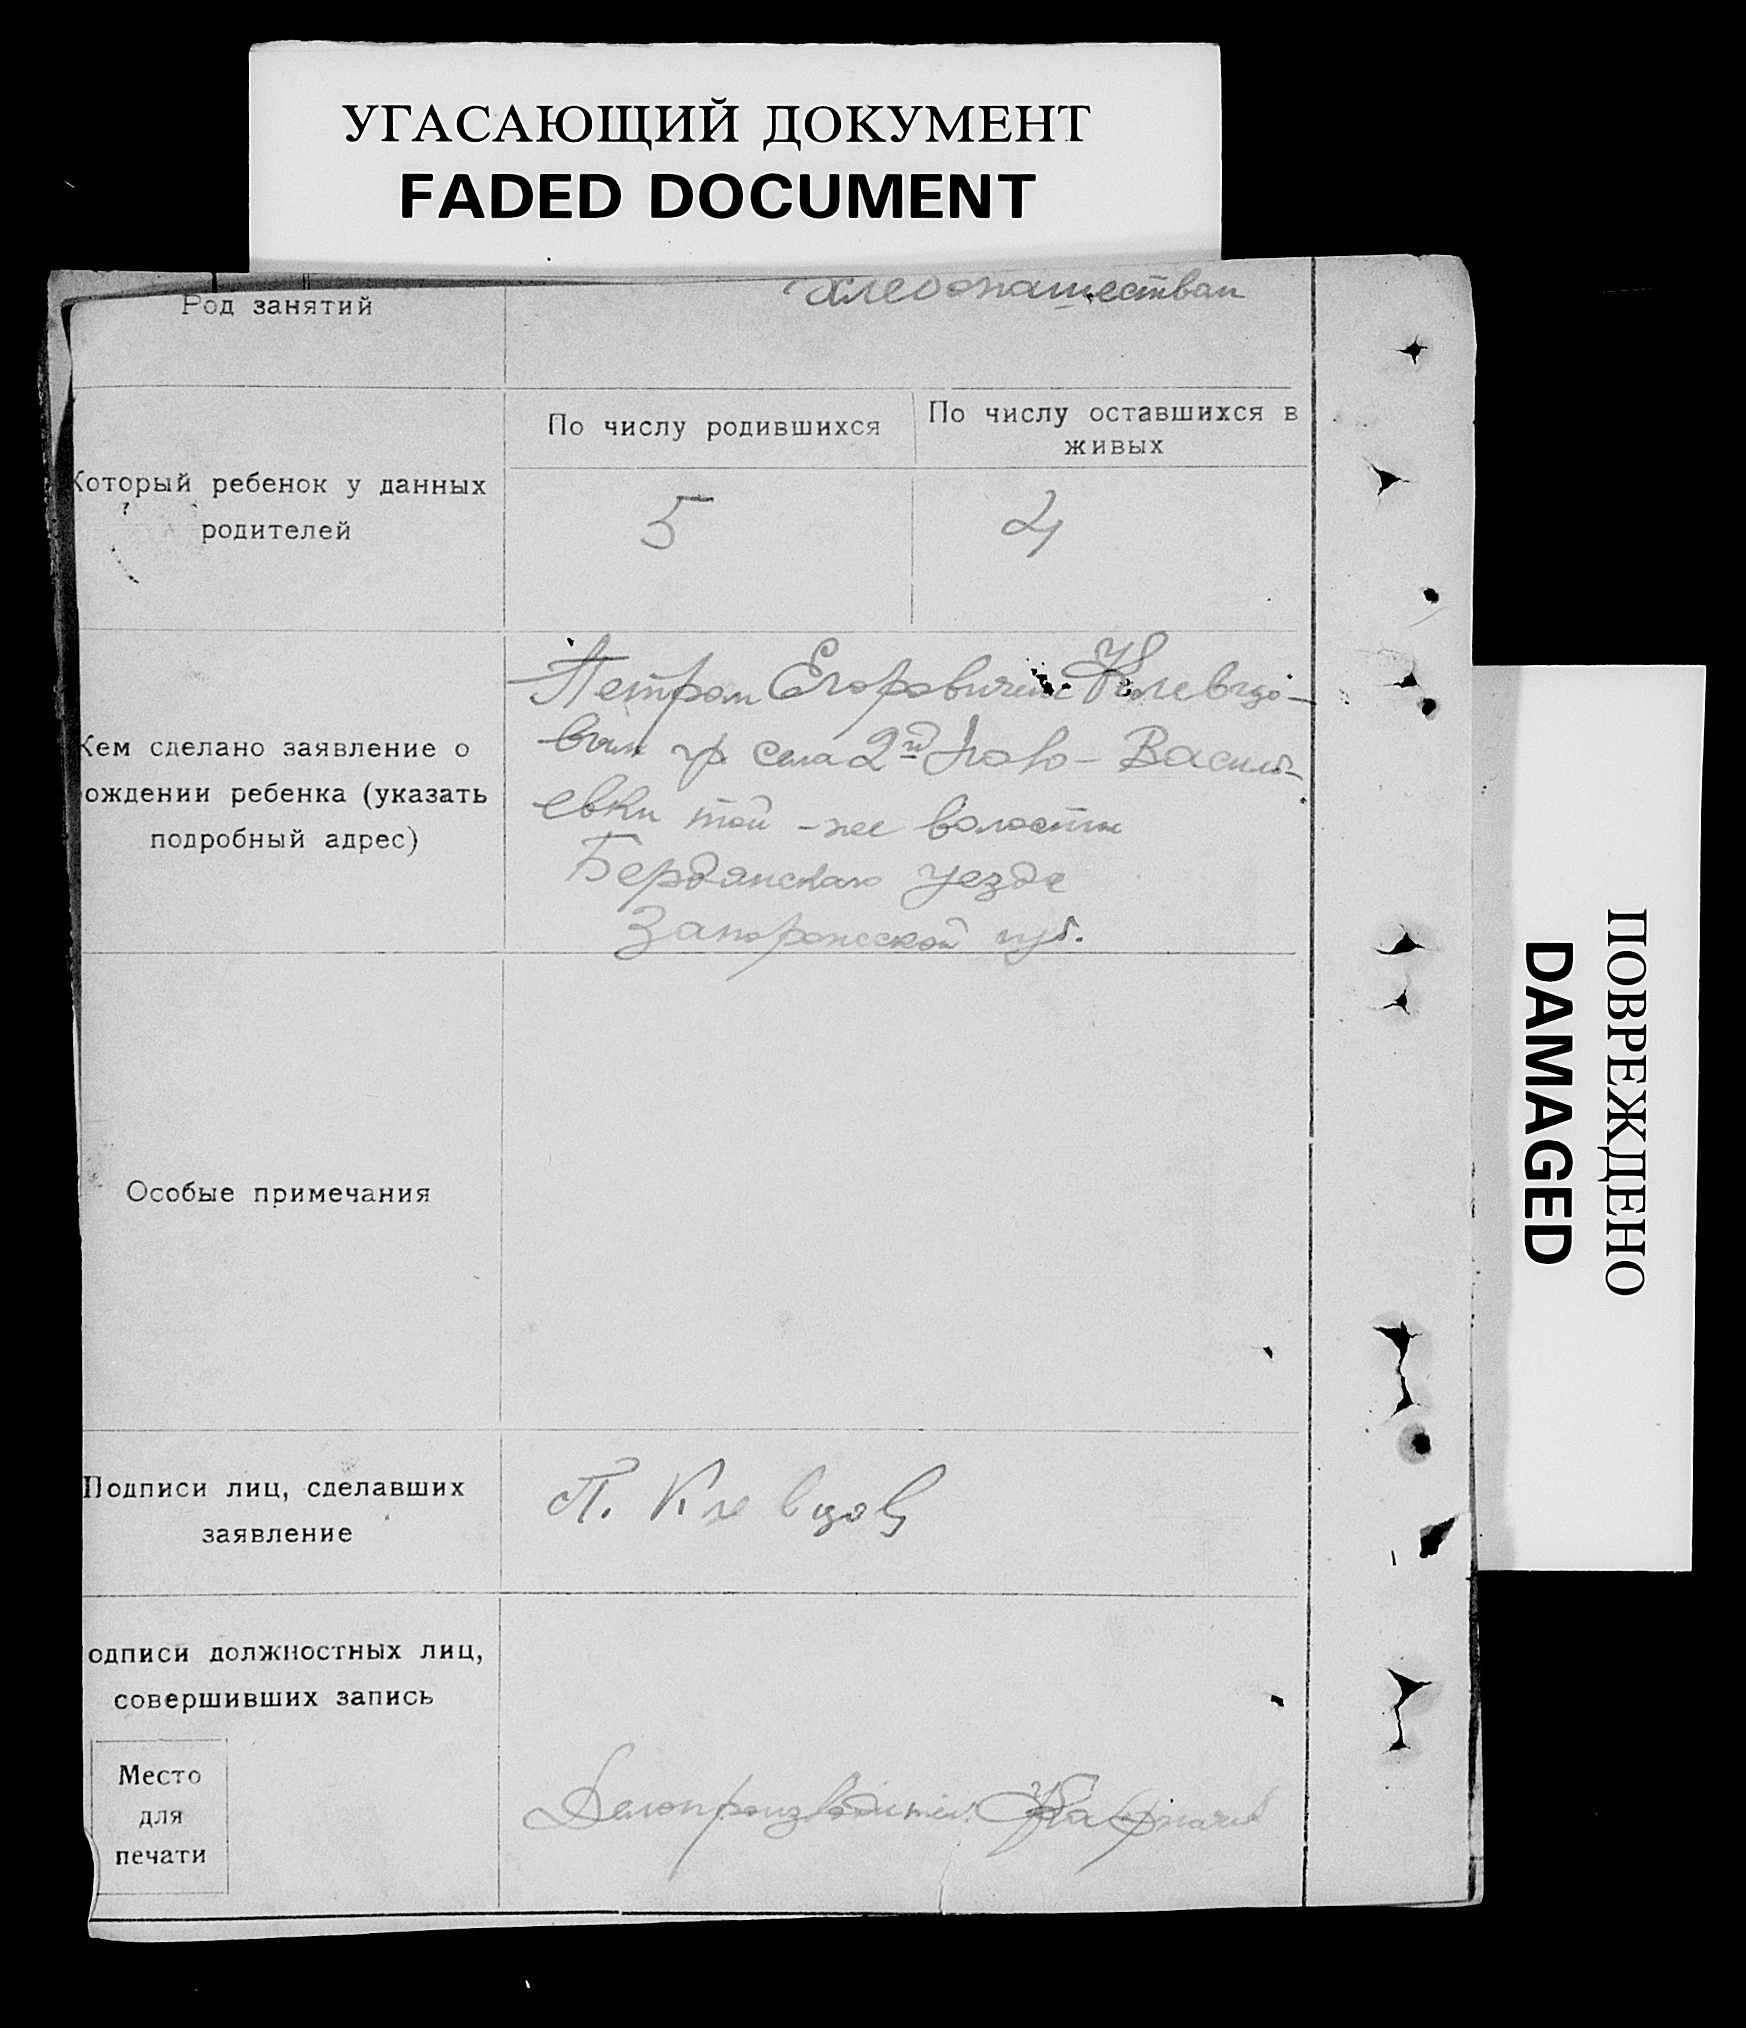 УГАСАЮЩИЙ ДОКУМЕНТ
FADED DOCUMENT
Род занятий
хлебопашеством
По числу родившихся
По числу оставшихся в
живых
Который ребенок у данных
родителей
5
4
Кем сделано заявление о
рождении ребенка (указать
подробный адрес)
Петром Егоровичем Клевцо-
вым гр. села 2й Ново-Василь-
евки той-же волости
Бердянскаго уезда
Запорожской губ.
Особые примечания
Подписи лиц, сделавших
заявление
П. Клевцов
одписи должностных лиц,
совершивших запись
Место
для
печати
Делопроизводитель
ПОВРЕЖДЕНО
DAMAGED